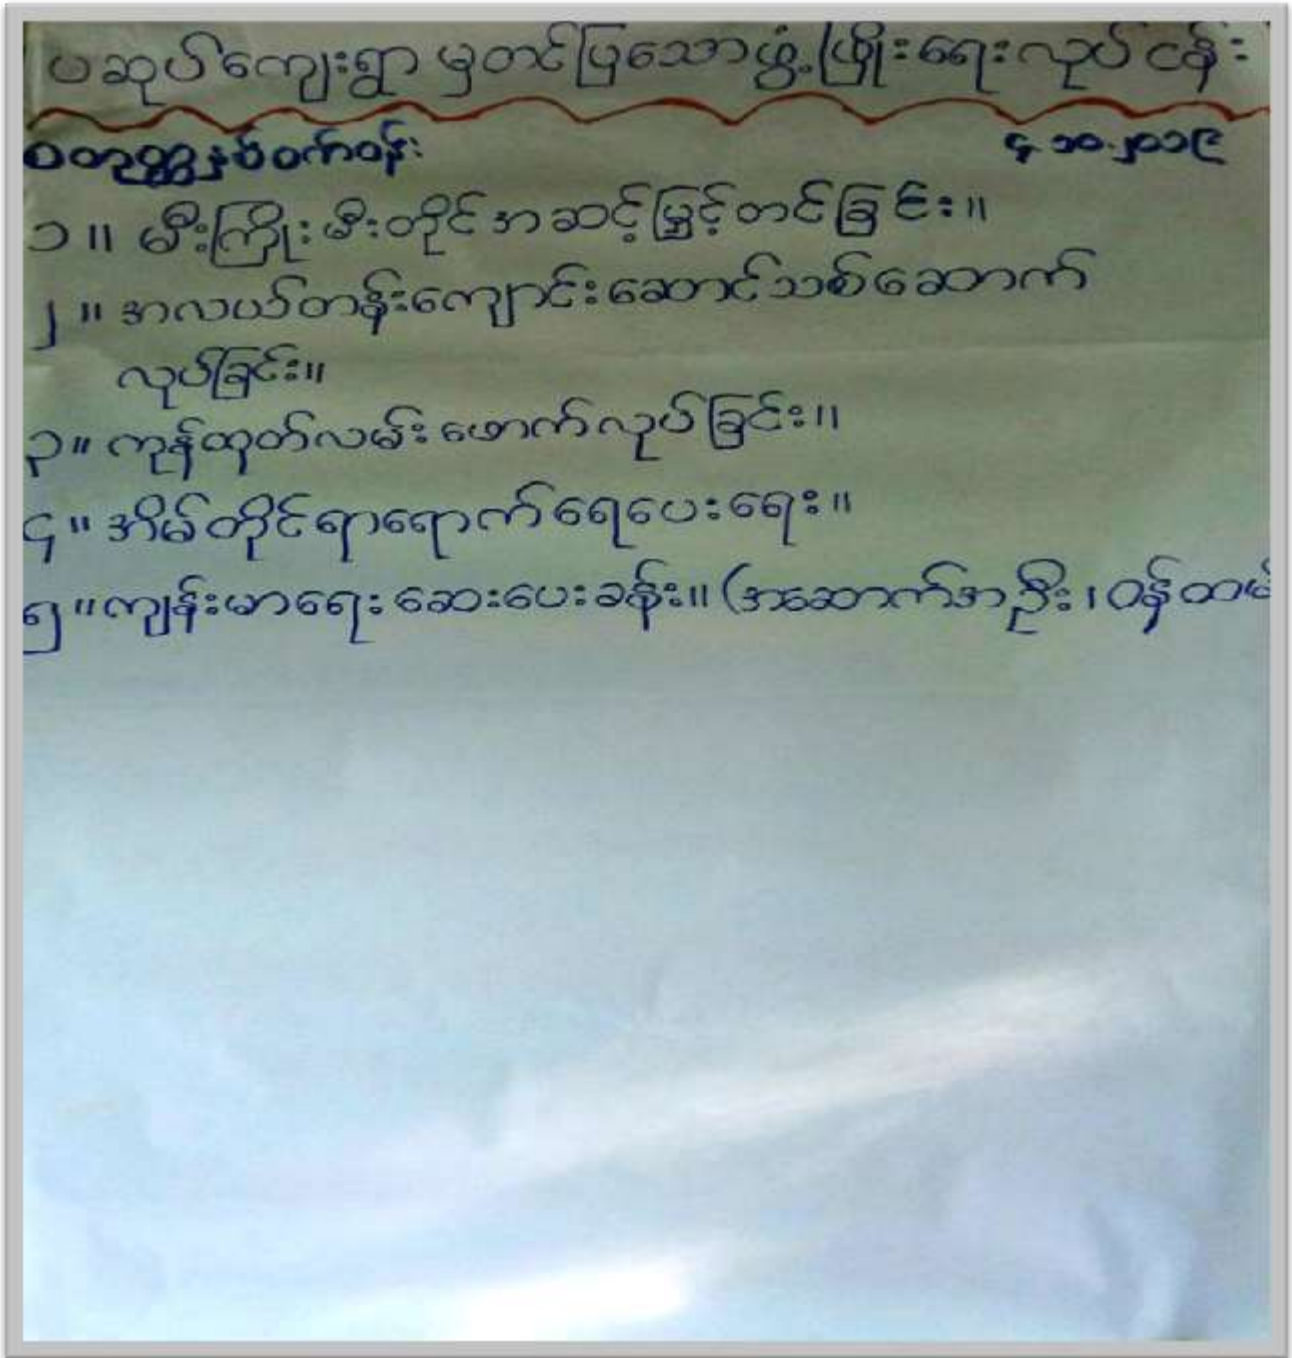 ပဆုပ်ကျေးရွာ မှတင်ပြသောဖွံ့ဖြိုးရေးလုပ်ငန်း
စတုတ္ထနှစ်ဝက်ဝန်း ၄.၁၀.၂၀၁၉
၁။ မီးကြိုးမီးတိုင်အဆင့်မြှင့်တင်ခြင်း။
၂။ အလယ်တန်းကျောင်းဆောင်သစ်ဆောက်
လုပ်ခြင်း။
၃။ ကုန်ထုတ်လမ်းဖောက်လုပ်ခြင်း။
၄။ အိမ်တိုင်ရာရောက်ရေပေးရေး။
၅။ ကျန်းမာရေးဆေးပေးခန်း။ (အဆောက်အဦး၊ ဝန်ထမ်